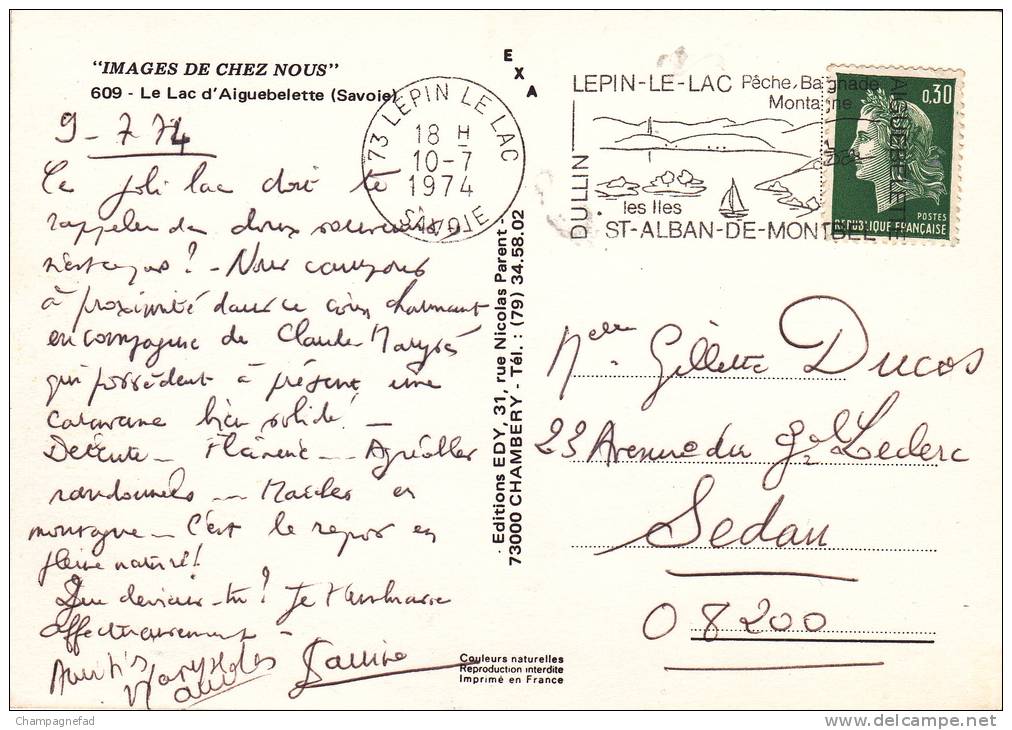 "IMAGES DE CHEZ NOUS"
609 - Le Lac d'Aiguebelette (Savoie)
9-7 74
Ce joli lac doit te
rappeler de doux souvenirs,
n'est-ce pas ? - Nous campons
à proximité dans ce coin charmant
en compagnie de Claude Marysé
qui possèdent à présent une
caravane bien solide ! -
Détente - Flânerie - Agréables
randonnées - Marches en
montagne - C'est le repos en
pleine nature !
Que deviens-tu ? Je t'embrasse
affectueusement -
Amitiés
E
X
A
Editions EDY, 31, rue Nicolas Parent -
73000 CHAMBERY - Tél. : (79) 34.58.02
Couleurs naturelles
Reproduction interdite
Imprimé en France
73 LEPIN LE LAC
18 H
10-7
1974
SAVOIE
LEPIN-LE-LAC Pêche, Baignade
Montagne
DULLIN
AIGUEBELETTE
les Iles
ST-ALBAN-DE-MONTBEL
0,30
POSTES
REPUBLIQUE FRANÇAISE
Melle Gillette Ducos
23 Avenue du Gal Leclerc
Sedan
08200
Champagnefad
delcampe.net